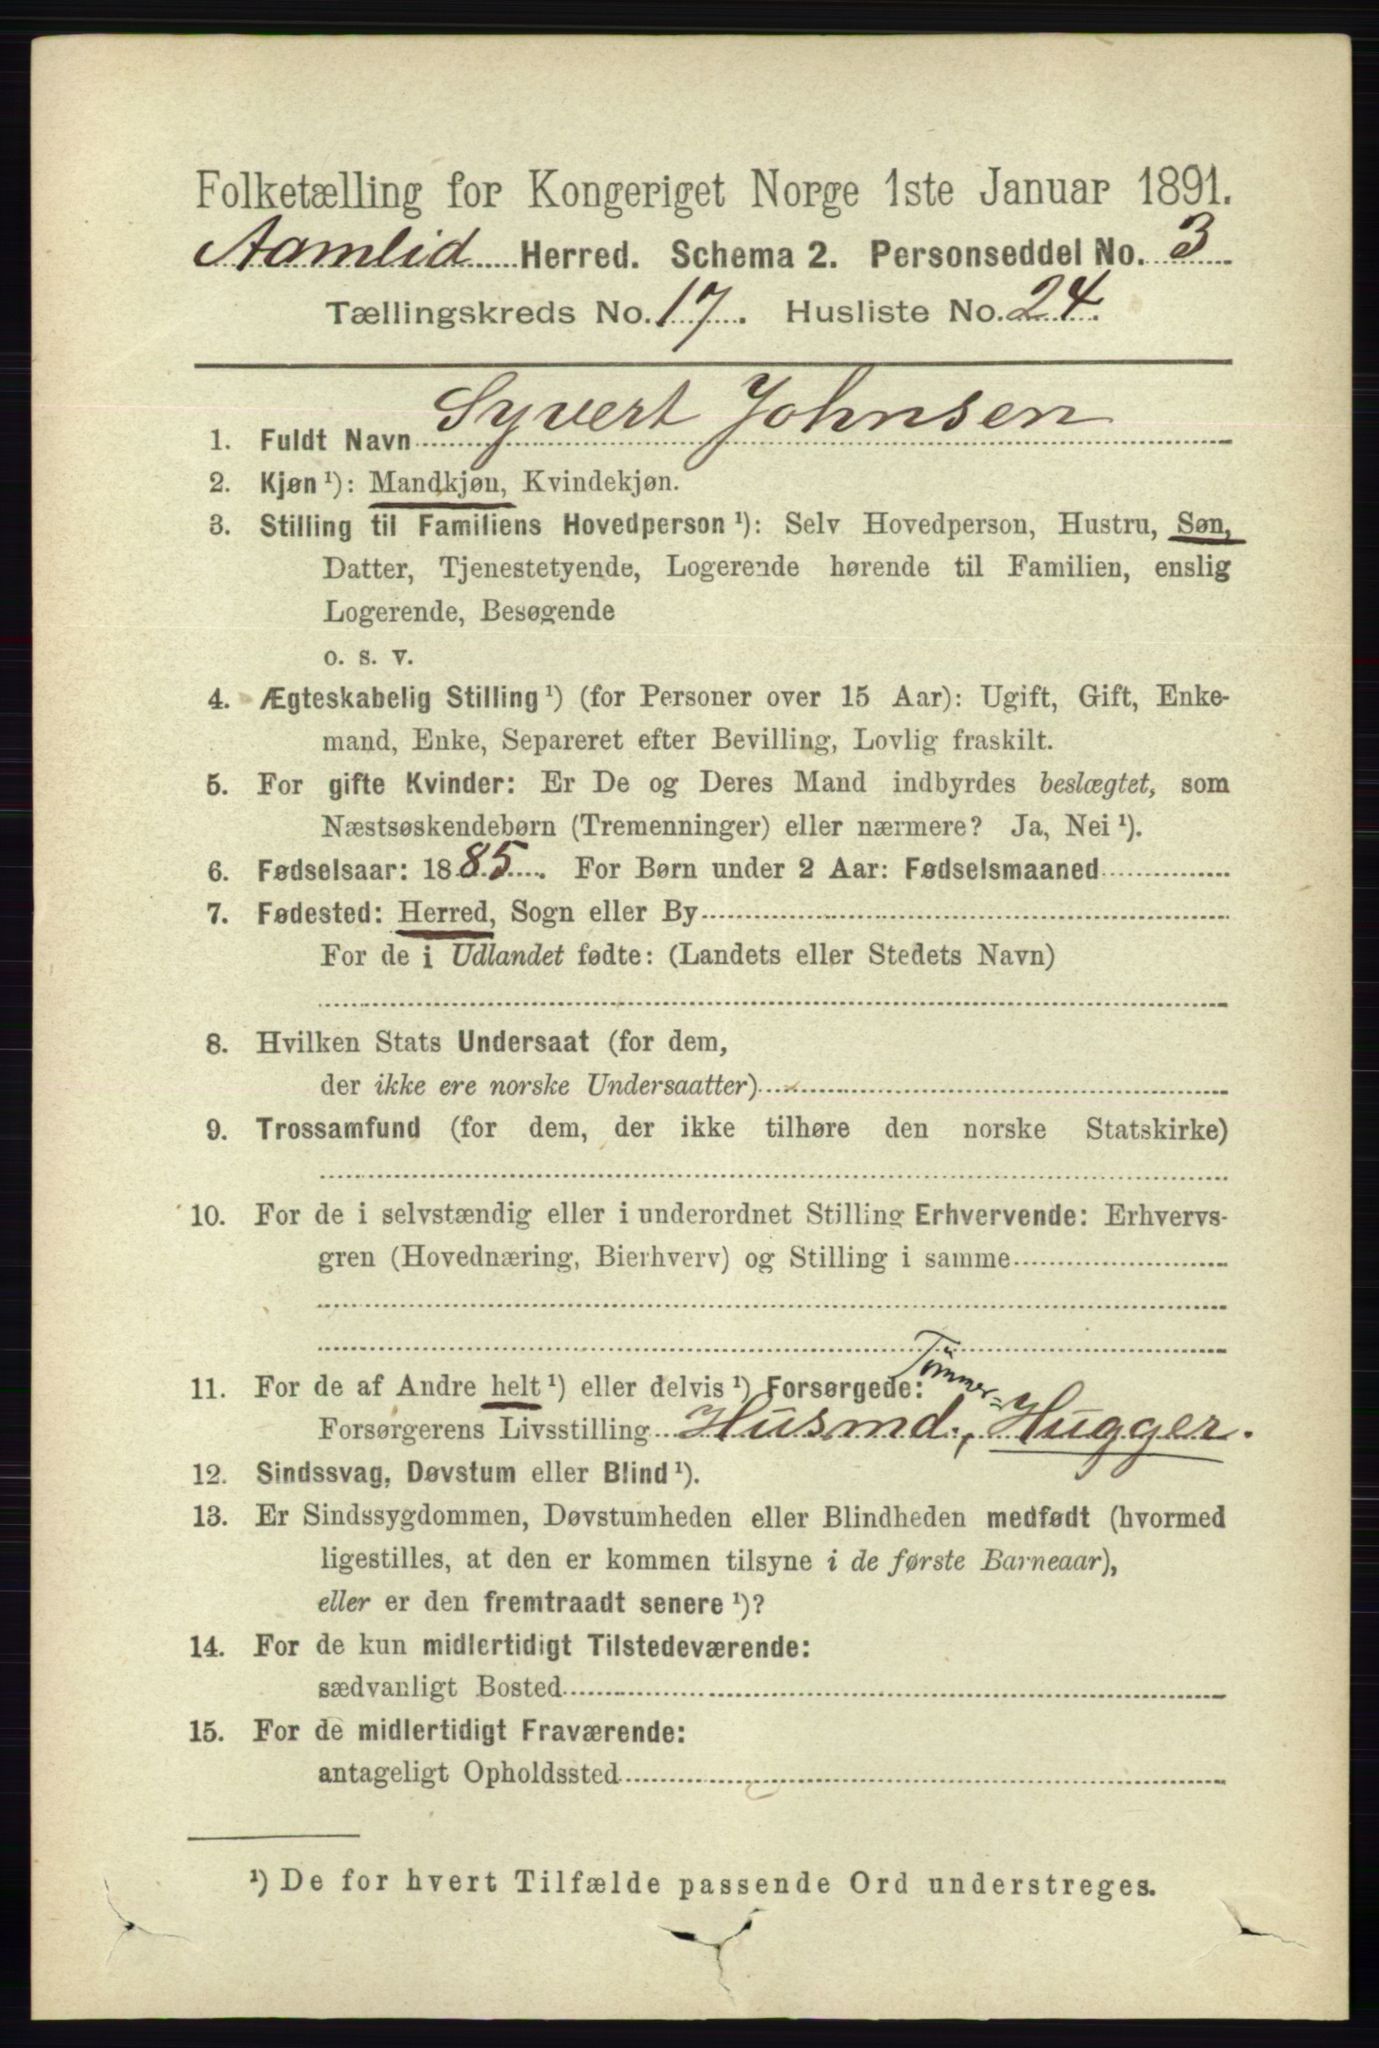 Folketælling for Kongeriget Norge 1ste Januar 1891.
Aamlid Herred. Schema 2. Personseddel No. 3
Tællingskreds No. 17. Husliste No. 24.
1. Fuldt Navn Syvert Johnsen
2. Kjøn ¹): Mandkjøn, Kvindekjøn.
3. Stilling til Familiens Hovedperson ¹): Selv Hovedperson, Hustru, Søn,
Datter, Tjenestetyende, Logerende hørende til Familien, enslig
Logerende, Besøgende
o. s. v.
4. Ægteskabelig Stilling ¹) (for Personer over 15 Aar): Ugift, Gift, Enke-
mand, Enke, Separeret efter Bevilling, Lovlig fraskilt.
5. For gifte Kvinder: Er De og Deres Mand indbyrdes beslægtet, som
Næstsøskendebørn (Tremenninger) eller nærmere? Ja, Nei ¹).
6. Fødselsaar: 1885. For Børn under 2 Aar: Fødselsmaaned
7. Fødested: Herred, Sogn eller By
For de i Udlandet fødte: (Landets eller Stedets Navn)
8. Hvilken Stats Undersaat (for dem,
der ikke ere norske Undersaatter)
9. Trossamfund (for dem, der ikke tilhøre den norske Statskirke)
10. For de i selvstændig eller i underordnet Stilling Erhvervende: Erhvervs-
gren (Hovednæring, Bierhverv) og Stilling i samme
11. For de af Andre helt ¹) eller delvis ¹) Forsørgede: Tømmer=
Forsørgerens Livsstilling Husmd., Hugger.
12. Sindssvag, Døvstum eller Blind ¹).
13. Er Sindssygdommen, Døvstumheden eller Blindheden medfødt (hvormed
ligestilles, at den er kommen tilsyne i de første Barneaar),
eller er den fremtraadt senere ¹)?
14. For de kun midlertidigt Tilstedeværende:
sædvanligt Bosted
15. For de midlertidigt Fraværende:
antageligt Opholdssted
¹) De for hvert Tilfælde passende Ord understreges.